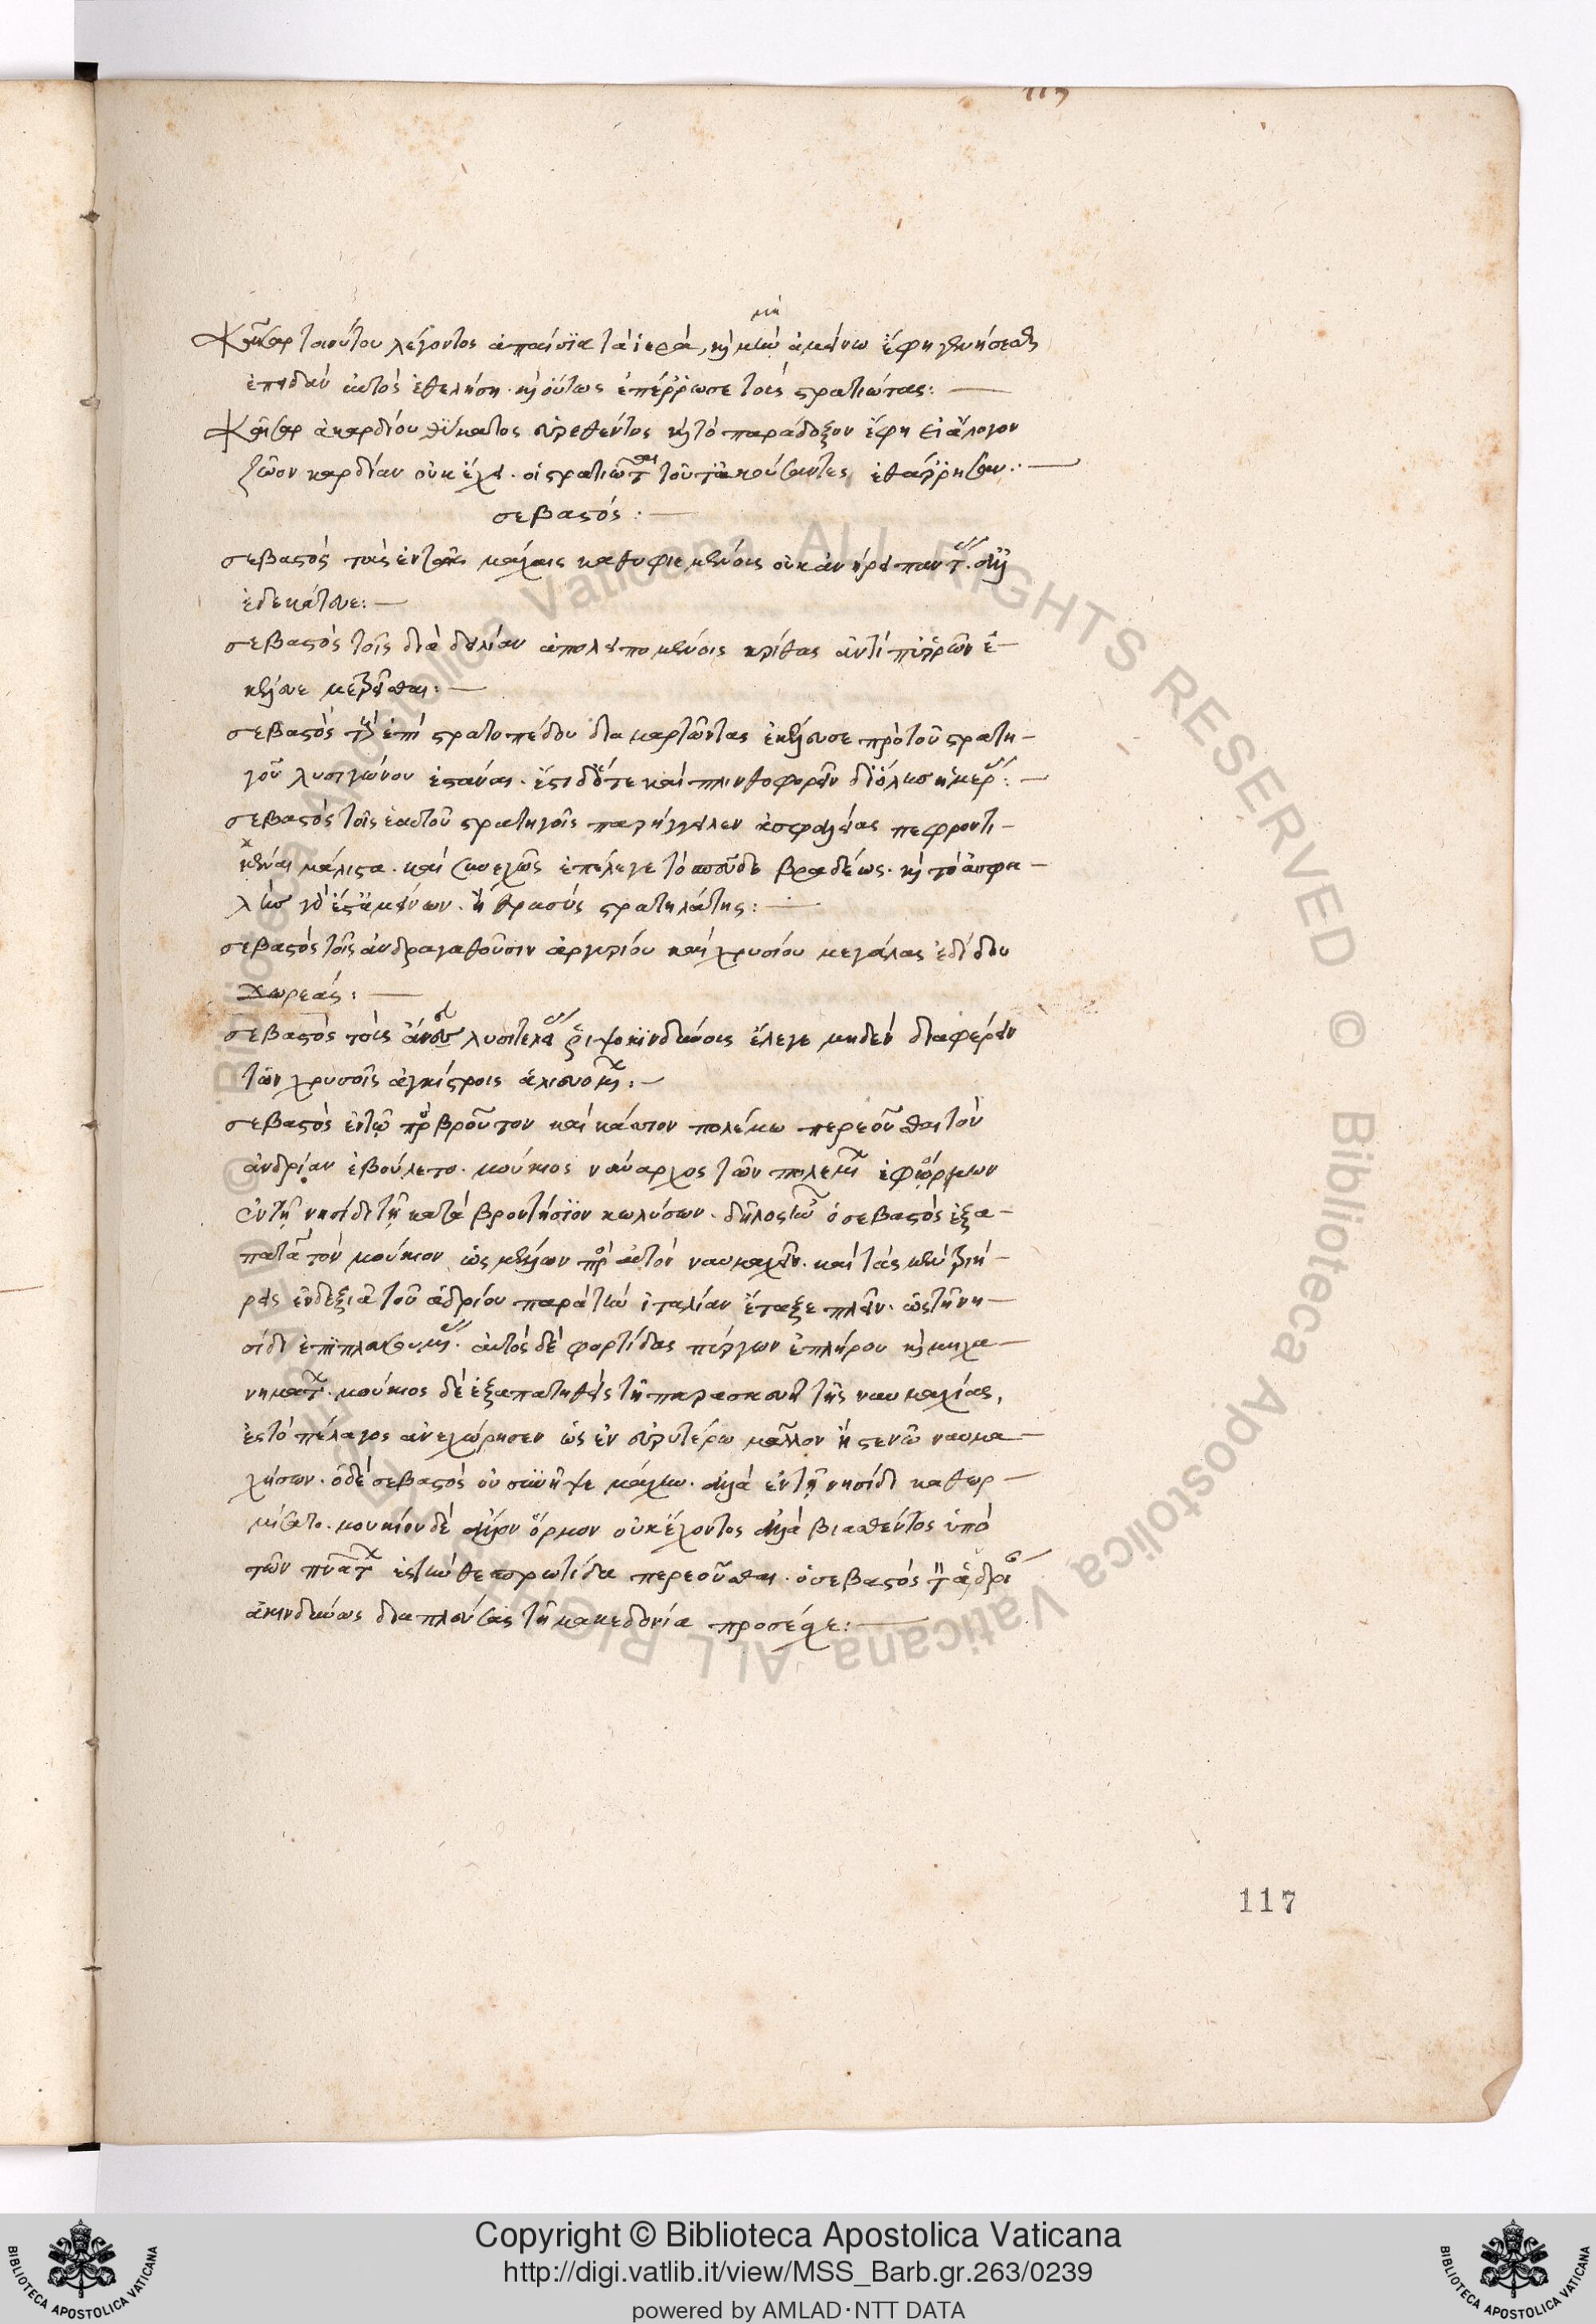 115
μὴ
Καῖσαρ τοῦ θύτου λέγοντος ἀπαίσια τὰ ἱερά, καὶ μὴν ἀμείνω ἔφη γενήσεσθαι
ἐπειδὰν αὐτὸς ἐθελήση. καὶ οὕτως ἐπέρρωσε τοὺς στρατιώτας:
Καῖσαρ ἀκαρδίου θύματος εὑρεθέντος καὶ τὸ παράδοξον ἔφη εἰ ἄλογον
ζῶον καρδίαν οὐκ ἔχει. οἱ στρατιῶται τοῦτ' ἀκούσαντες ἐθάρρησαν:
σεβαστός:
σεβαστὸς τοὺς ἐν ταῖς μάχαις καθυφιεμένους οὐκ ἀνήρει πάντας. ἀλλ'
ἐδεκάτευε:
σεβαστὸς τοῖς διὰ δειλίαν ἀπολειπομένοις κριθὰς ἀντὶ πυρῶν ἐ-
κέλευε μετρεῖσθαι:
σεβαστὸς τοὺς ἐπὶ στρατοπέδου διαμαρτῶντας ἐκέλευσε πρὸ τοῦ στρατη-
γοῦ λυσιζώνους ἑστάναι. ἔστι δ' ὅτε καὶ πλινθοφορεῖν δι' ὅλης ἡμέρας:
σεβαστὸς τοῖς ἑαυτοῦ στρατηγοῖς παρήγγειλεν ἀσφαλείας πεφροντι-
κέναι μάλιστα. καὶ συνεχῶς ἐπέλεγε τὸ σπεῦδε βραδέως. καὶ τὸ ἀσφα-
λὴς γάρ ἐστ' ἀμείνων. ἢ θρασὺς στρατηλάτης:
σεβαστὸς τοῖς ἀνδραγαθοῦσιν ἀργυρίου καὶ χρυσίου μεγάλας ἐδίδου
χωρεάς:
σεβαστὸς τοὺς ἄνευ λυσιτελείας ῥιψοκινδύνους ἔλεγε μηδὲν διαφέρειν
τῶν χρυσοῖς ἀγκίστροις ἁλιευομένων:
σεβαστὸς ἐν τῷ πρὸς βροῦτον καὶ κάσσιον πολέμω περεοῦσθαι τὸν
ἀνδρίαν ἐβούλετο. μούκιος ναύαρχος τῶν πολεμίων ἐφώρμων
ἐν τῇ νησίδι τῇ κατὰ βροντήσιον κωλύσων. δῆλος ἦν ὁ σεβαστὸς ἐξα-
πατᾶ τὸν μούκιον ὡς μέλλων πρὸς αὐτὸν ναυμαχεῖν. καὶ τὰς μὲν τριή-
ρεις ἐν δεξιᾶ τοῦ ἀδρίου παρὰ τὴν ἰταλίαν ἔταξε πλεῖν. ὡς τῆ νη-
σίδι ἐπιπλευσομένας. αὐτὸς δὲ φορτίδας πύργων ἐπλήρου καὶ μηχα-
νημάτων. μούκιος δὲ ἐξαπατηθεὶς τῆ παρασκευῆ τῆς ναυμαχίας,
ἐς τὸ πέλαγος ἀνεχώρησεν ὡς ἐν εὐρυτέρω μᾶλλον ἢ στενῶ ναυμα-
χήσων. ὁ δὲ σεβαστὸς οὐ συνῆψε μάχην. ἀλλὰ ἐν τῇ νησίδι καθωρ-
μίσατο. μουκίου δὲ ἄλλον ὅρμον οὐκ ἔχοντος ἀλλὰ βιασθέντος ὑπὸ
τῶν πνευμάτων ἐς τὴν θεσπρωτίδα περεοῦσθαι. ὁ σεβαστὸς τὸν ἀδρίαν
ἀκινδύνως διαπλεύσας τῆ μακεδονία προσέσχε:
117
Copyright © Biblioteca Apostolica Vaticana
http://digi.vatlib.it/view/MSS_Barb.gr.263/0239
powered by AMLAD·NTT DATA
BIBLIOTECA APOSTOLICA VATICANA
BIBLIOTECA APOSTOLICA VATICANA
© Biblioteca Apostolica Vaticana ALL RIGHTS RESERVED © Biblioteca Apostolica Vaticana ALL RIGHTS RESERVED